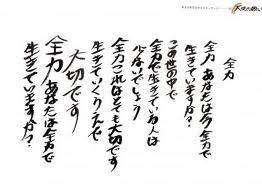 全力
全力 あなたは今全力で
生きていますか?
この世の中で
全力で生きている人は
少ないでしょう
全力これはとても大切です
生きていくうえで
大切です
全力 あなたは全力で
生きていますか?